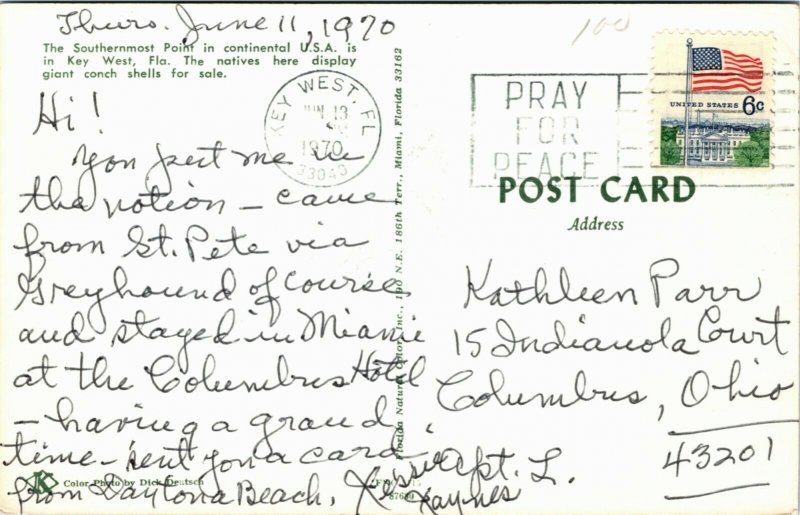 Thurs. June 11, 1970
The Southernmost Point in continental U.S.A. is
in Key West, Fla. The natives here display
giant conch shells for sale.
Hi!
You put me in
the notion – came
from St. Pete via
Greyhound of course
and stayed in Miami
at the Columbus Hotel
– having a grand
time – sent you a card
from Daytona Beach.
Color Photo by Dick Deutsch
Florida Natural Color, Inc., 190 N.E. 186th Terr., Miami, Florida 33162
KEY WEST, FL
JUN 13
1970
33040
100
PRAY
FOR
PEACE
UNITED STATES 6c
POST CARD
Address
Kathleen Parr
15 Indianola Court
Columbus, Ohio
43201
Apt. L.
87680